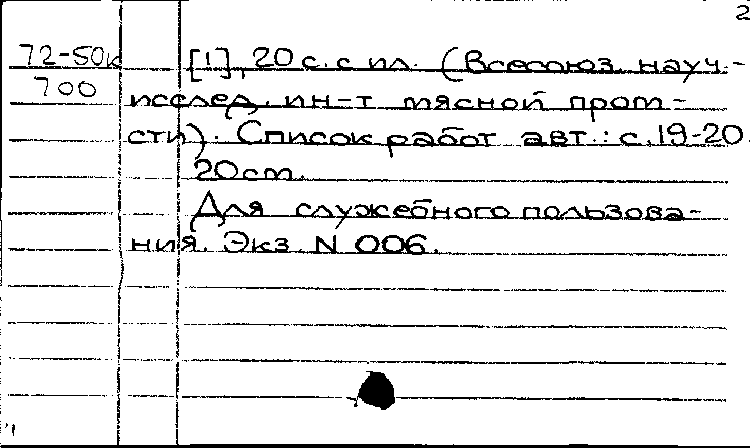 2
72-50к [1], 20 с. с ил. (Всесоюз. науч.-
700 исслед. ин-т мясной пром-
сти). Список работ авт.: с. 19-20.
20 cm.
Для служебного пользова-
ния. Экз. N 006.